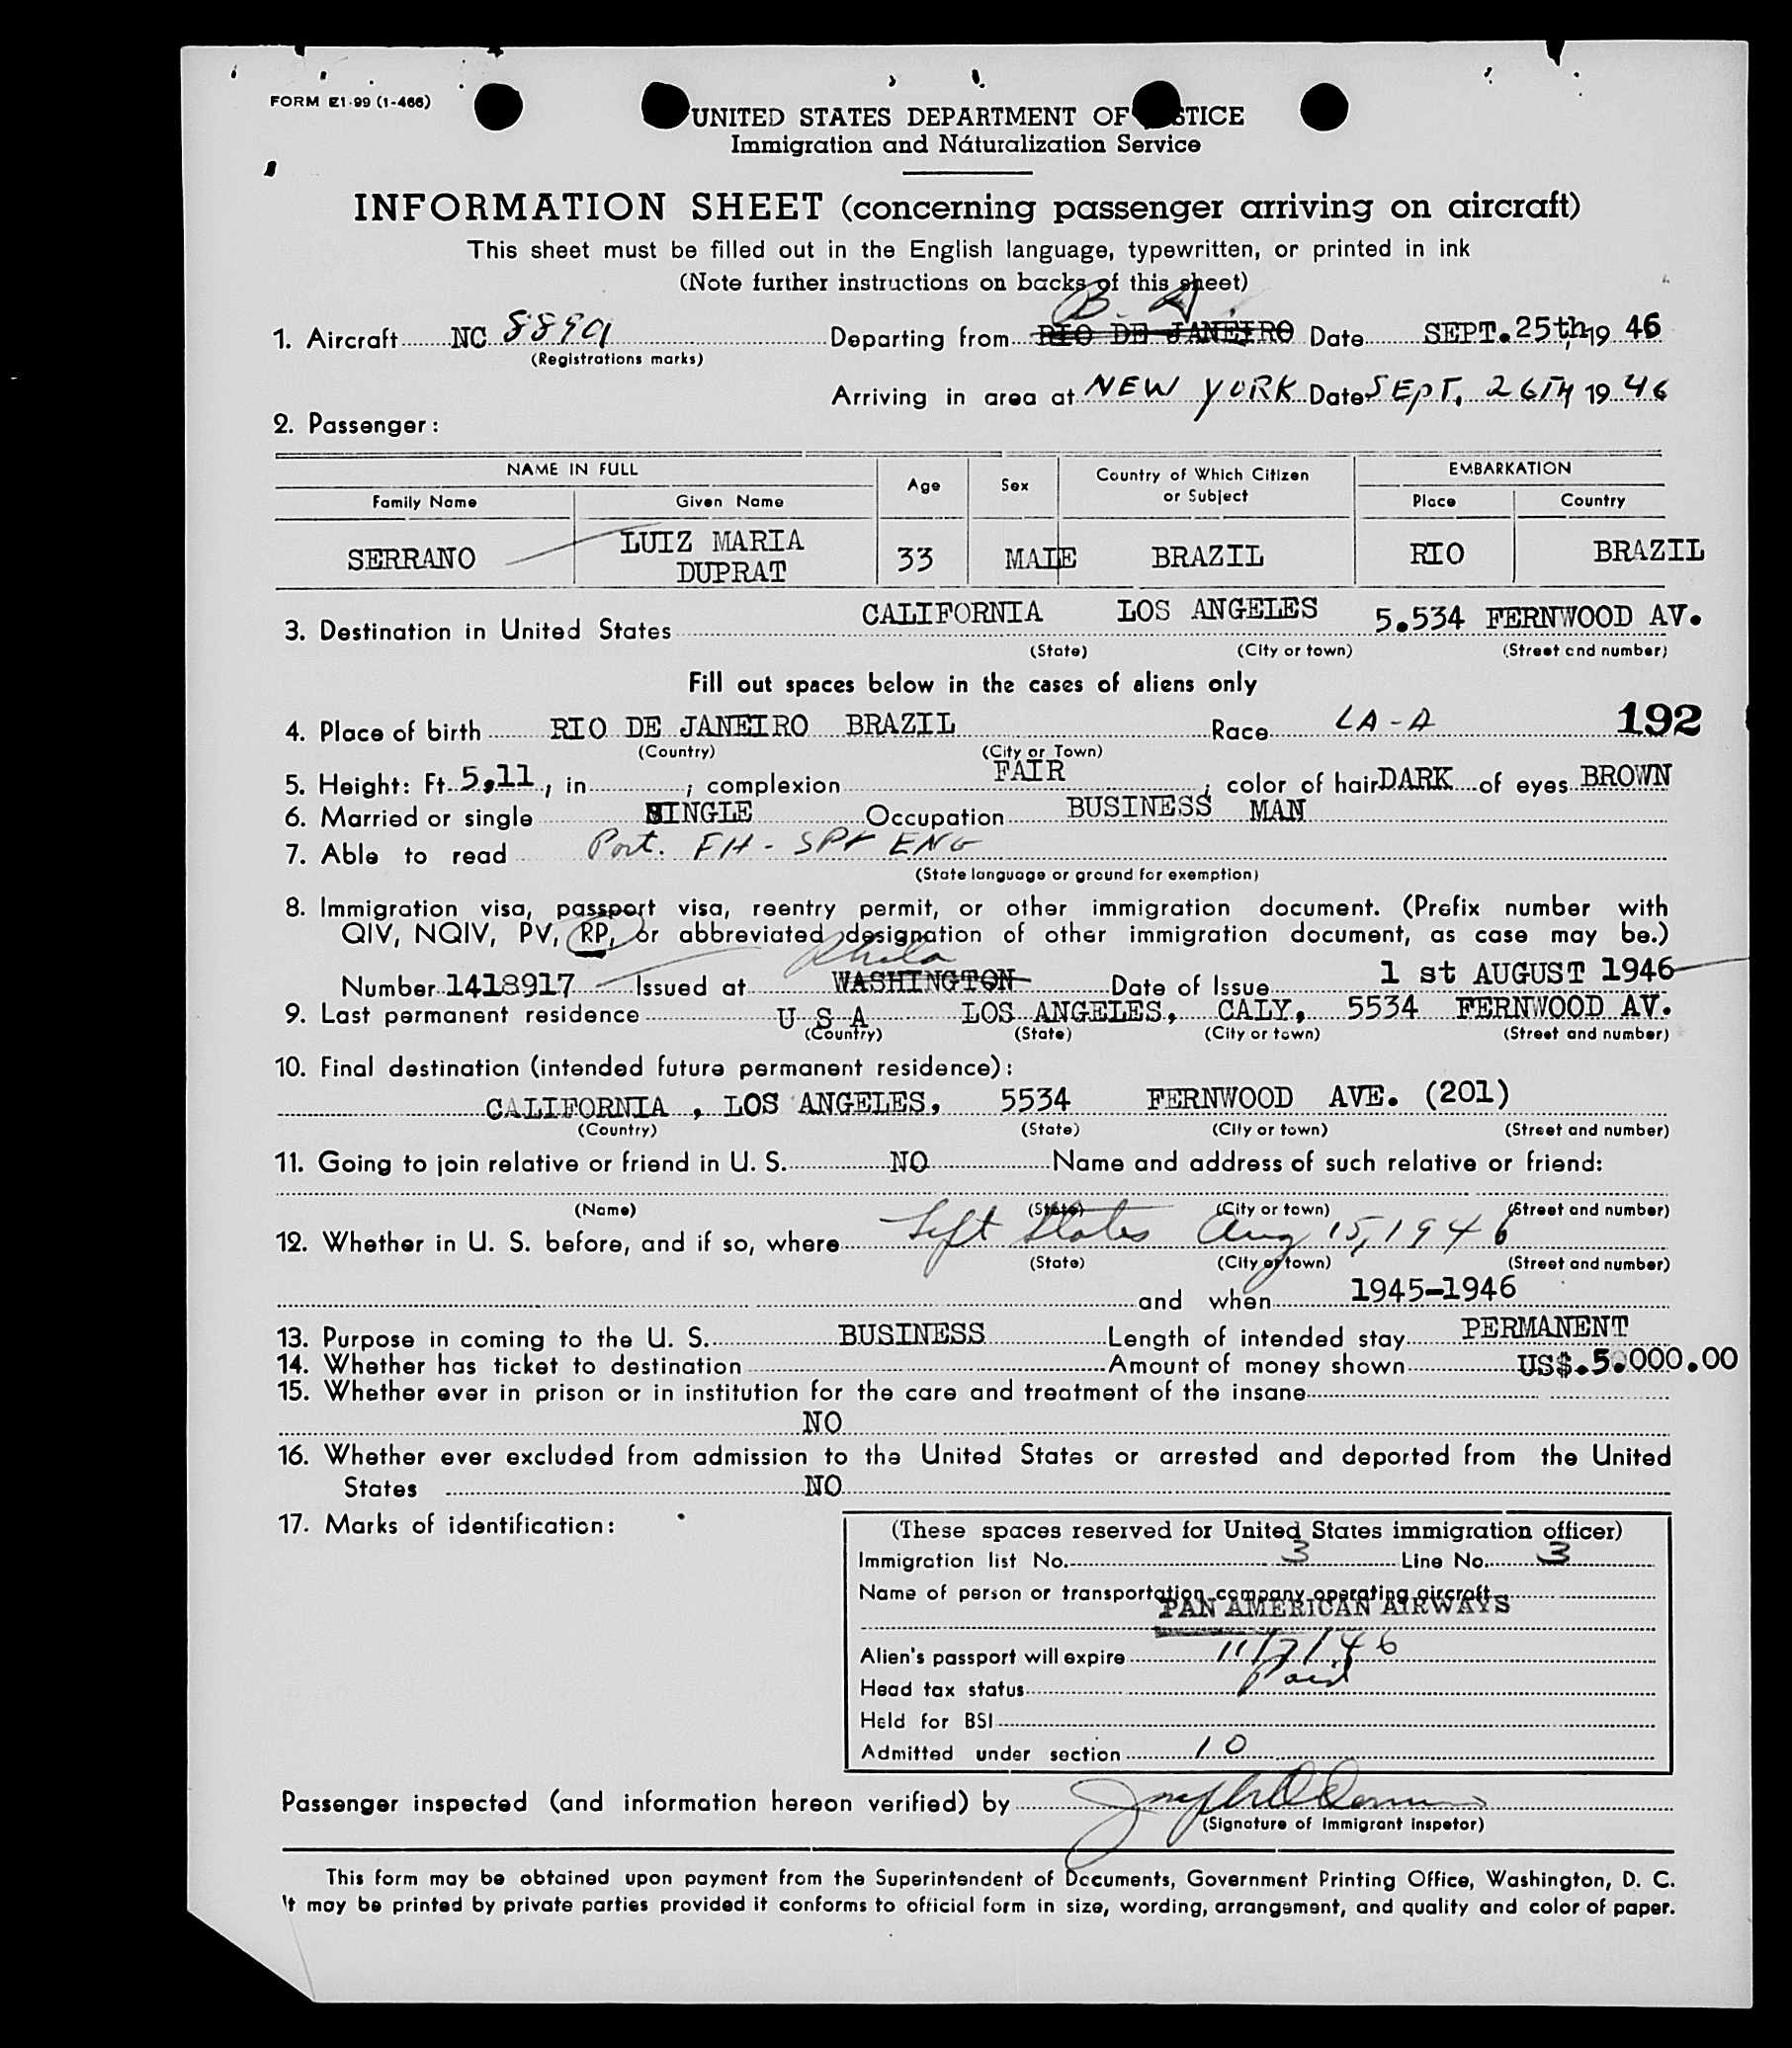 FORM E1-99 (1-466)
UNITED STATES DEPARTMENT OF STICE
Immigration and Náturalization Service
INFORMATION SHEET (concerning passenger arriving on aircraft)
This sheet must be filled out in the English language, typewritten, or printed in ink
(Note further instructions on backs of this sheet)
B. A.
1. Aircraft NC 88901 Departing from RIO DE JANEIRO Date SEPT. 25th, 19 46
(Registrations marks)
Arriving in area at NEW YORK Date SEPT. 26TH 19 46
2. Passenger:
NAME IN FULL Age Sex Country of Which Citizen or Subject EMBARKATION
Family Name Given Name Place Country
SERRANO LUIZ MARIA DUPRAT 33 MALE BRAZIL RIO BRAZIL
3. Destination in United States CALIFORNIA LOS ANGELES 5.534 FERNWOOD AV.
(State) (City or town) (Street and number)
Fill out spaces below in the cases of aliens only
4. Place of birth RIO DE JANEIRO BRAZIL Race LA-A 192
(Country) (City or Town)
5. Height: Ft. 5,11, in ; complexion FAIR ; color of hair DARK of eyes BROWN
6. Married or single SINGLE Occupation BUSINESS MAN
7. Able to read Port. FH - SPr ENG
(State language or ground for exemption)
8. Immigration visa, passport visa, reentry permit, or other immigration document. (Prefix number with
QIV, NQIV, PV, RP, or abbreviated designation of other immigration document, as case may be.)
Phila
Number 1418917 Issued at WASHINGTON Date of Issue 1 st AUGUST 1946
9. Last permanent residence U S A LOS ANGELES, CALY, 5534 FERNWOOD AV.
(Country) (State) (City or town) (Street and number)
10. Final destination (intended future permanent residence):
CALIFORNIA , LOS ANGELES, 5534 FERNWOOD AVE. (201)
(Country) (State) (City or town) (Street and number)
11. Going to join relative or friend in U. S. NO Name and address of such relative or friend:
(Name) (State) (City or town) (Street and number)
12. Whether in U. S. before, and if so, where Left States Aug 15, 1946
(State) (City or town) (Street and number)
and when 1945-1946
13. Purpose in coming to the U. S. BUSINESS Length of intended stay PERMANENT
14. Whether has ticket to destination Amount of money shown US$.5.000.00
15. Whether ever in prison or in institution for the care and treatment of the insane
NO
16. Whether ever excluded from admission to the United States or arrested and deported from the United
States NO
17. Marks of identification:
(These spaces reserved for United States immigration officer)
Immigration list No. 3 Line No. 3
Name of person or transportation company operating aircraft
PAN AMERICAN AIRWAYS
Alien's passport will expire 11/7/46
Head tax status Paid
Held for BSI
Admitted under section 10
Passenger inspected (and information hereon verified) by
(Signature of Immigrant inspetor)
This form may be obtained upon payment from the Superintendent of Documents, Government Printing Office, Washington, D. C.
It may be printed by private parties provided it conforms to official form in size, wording, arrangement, and quality and color of paper.